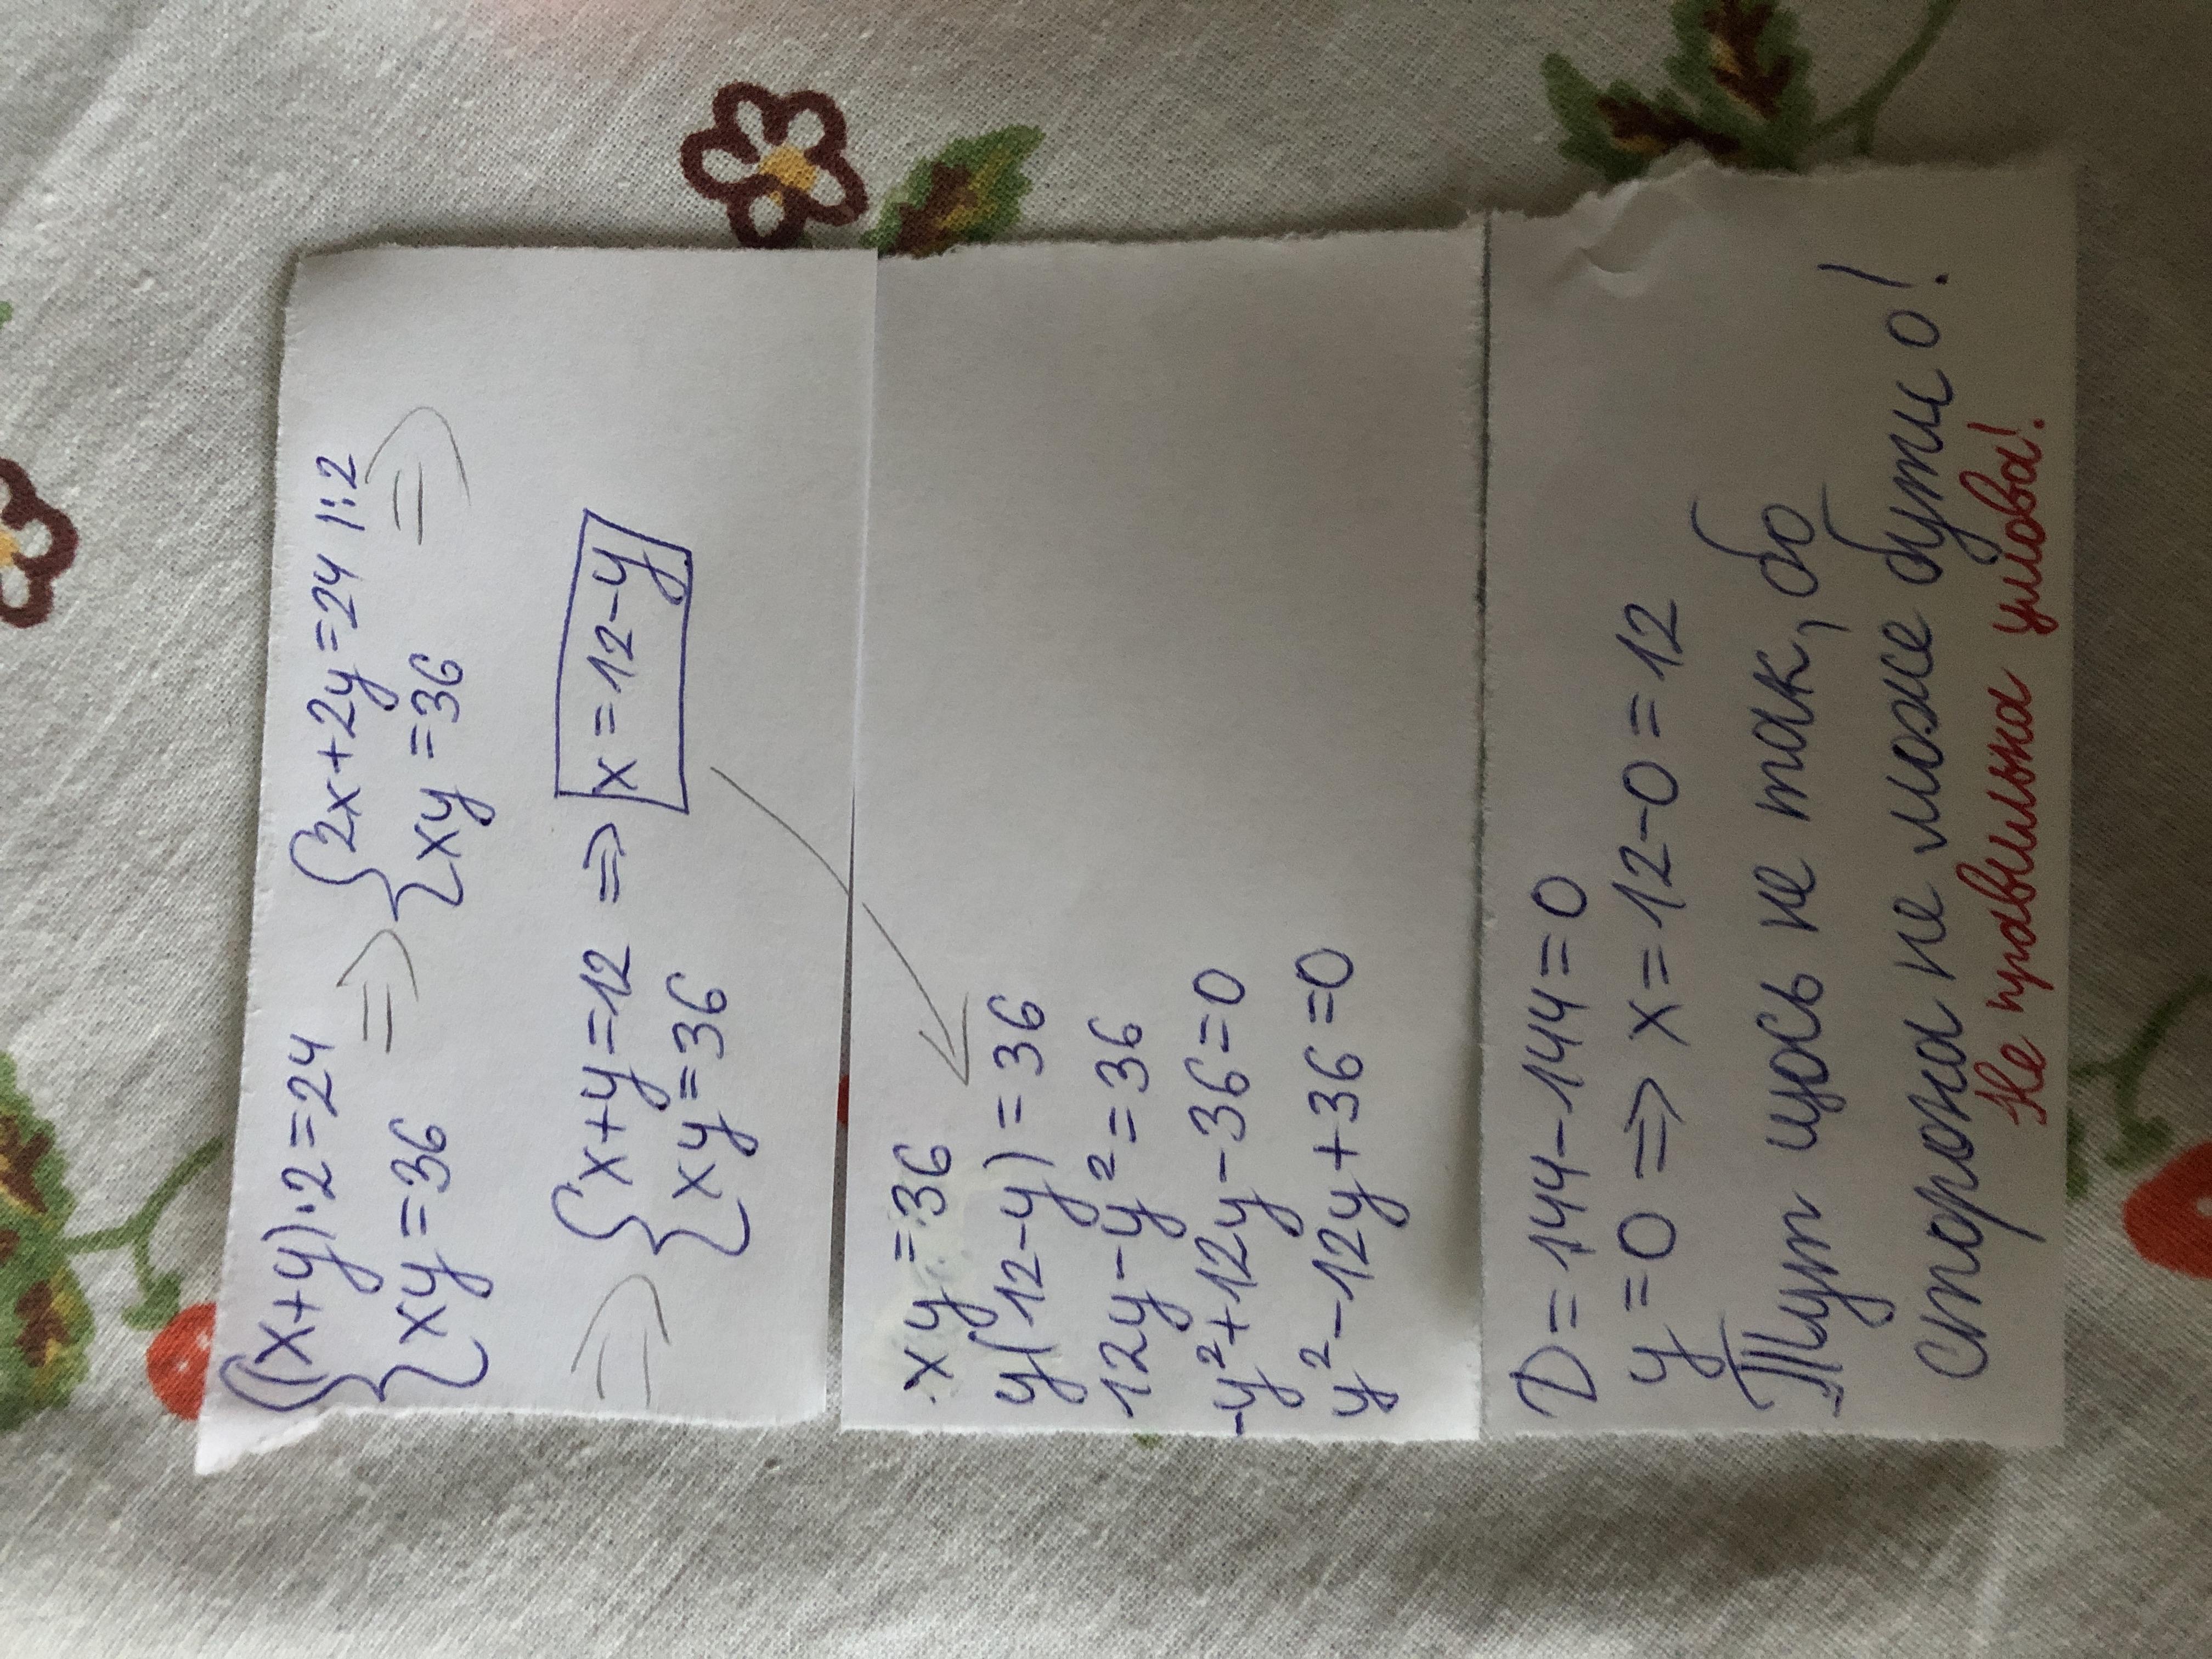 {(x+y)·2=24 => {2x+2y=24 |:2 =>
xy=36 xy=36
=> {x+y=12 => x=12-y
xy=36
xy=36
y(12-y)=36
12y-y²=36
-y²+12y-36=0
y²-12y+36=0
D=144-144=0
y=0 => x=12-0=12
Тут щось не так, бо
сторона не може бути 0!
Не правильна умова!